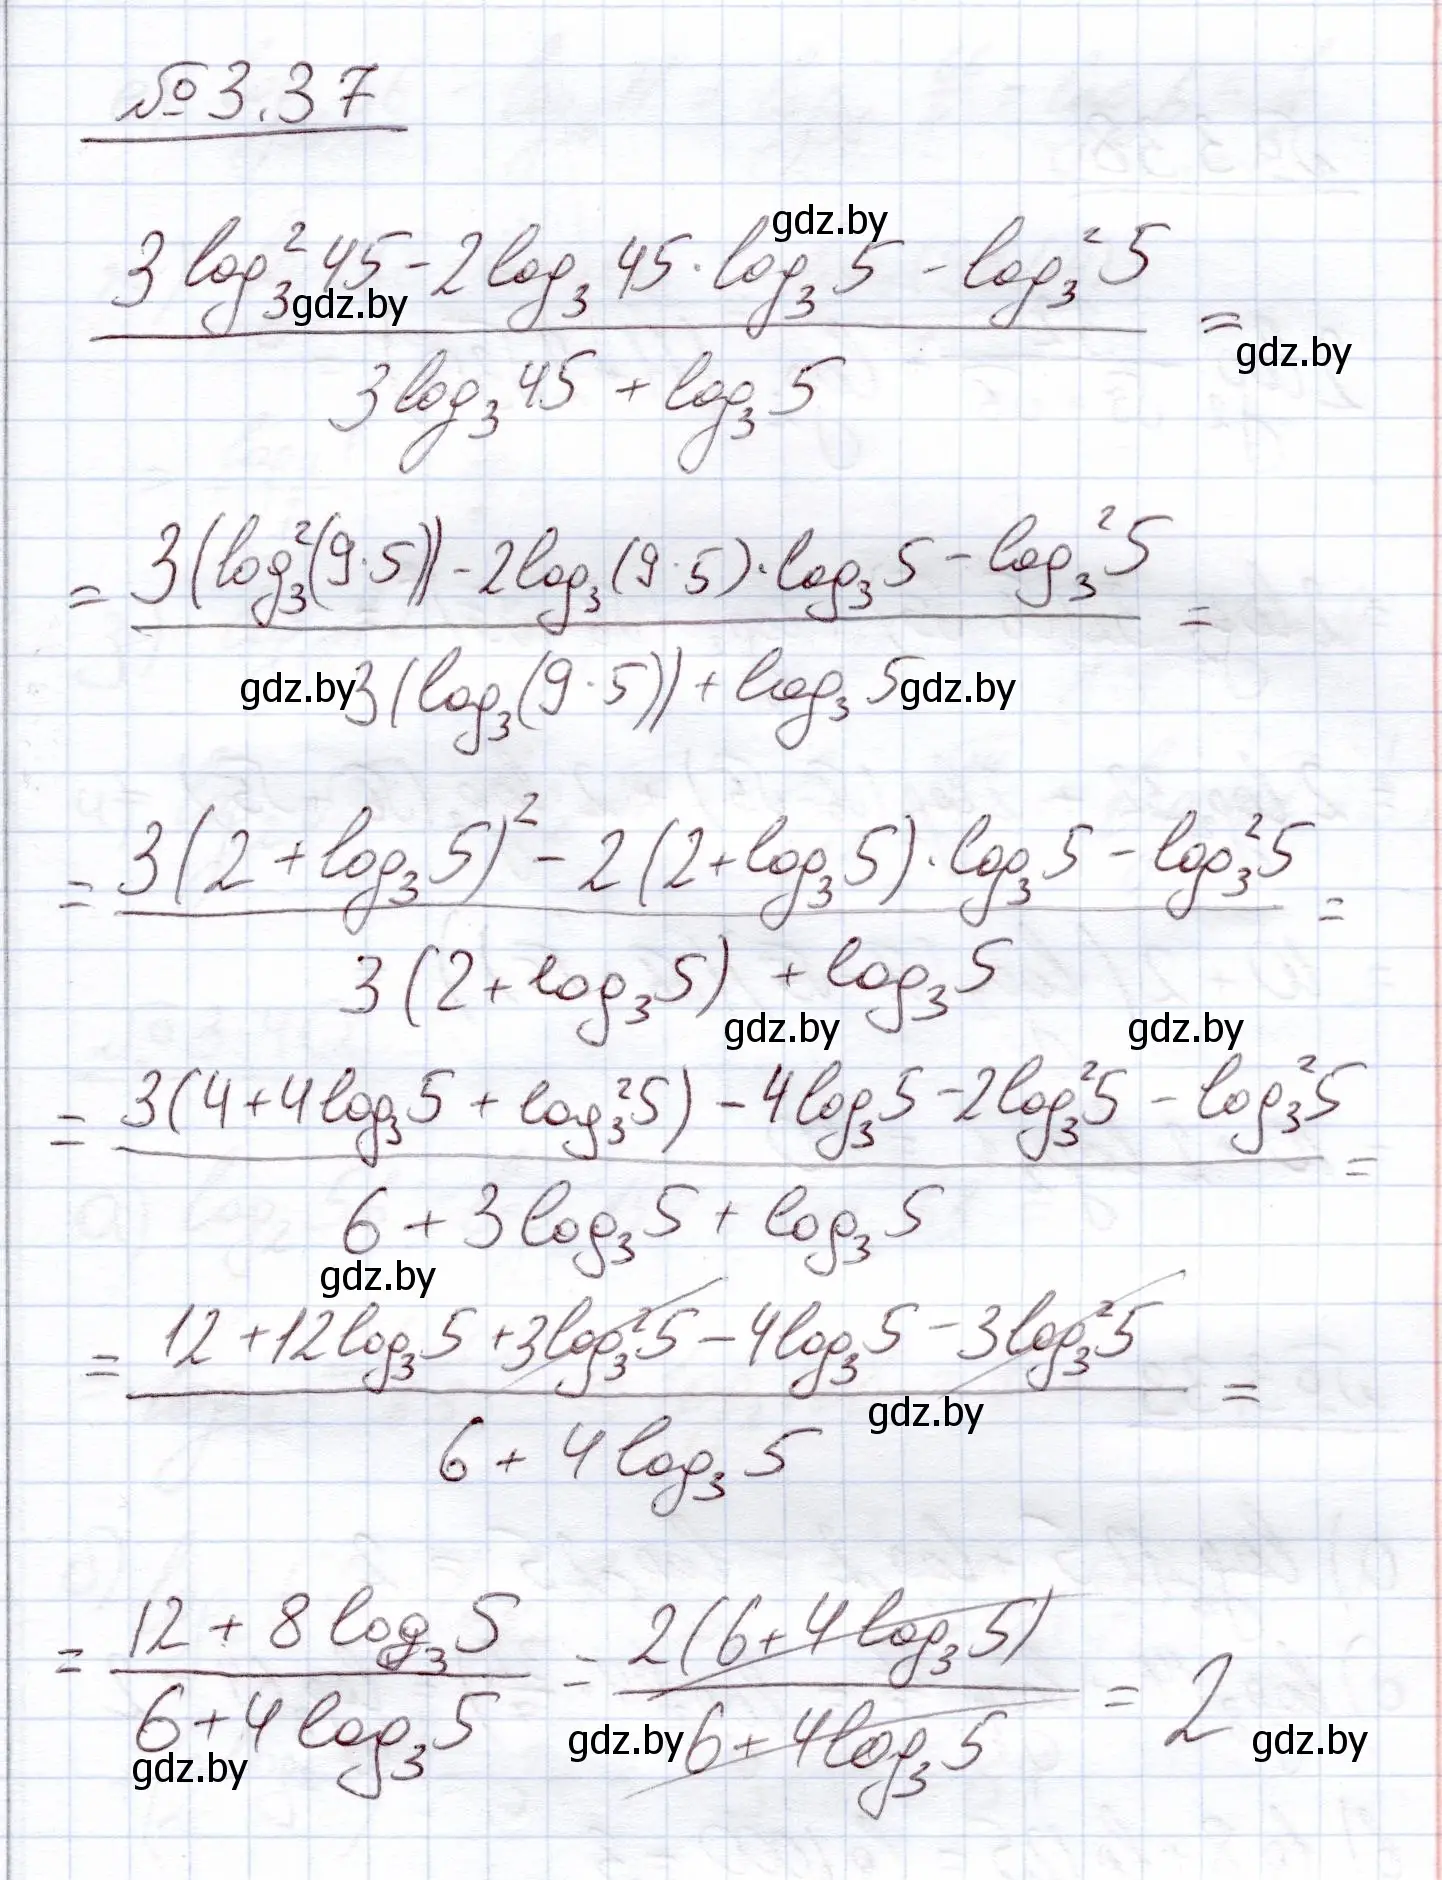 № 3.37
gdz.by
3 log₃² 45 - 2 log₃ 45 · log₃ 5 - log₃² 5
gdz.by
=
gdz.by
3 log₃ 45 + log₃ 5
= 3(log₃²(9·5)) - 2 log₃ (9·5) · log₃ 5 - log₃² 5 =
gdz.by 3(log₃(9·5)) + log₃ 5 gdz.by
= 3(2 + log₃ 5)² - 2(2 + log₃ 5) · log₃ 5 - log₃² 5 =
3(2 + log₃ 5) + log₃ 5
gdz.by gdz.by
= 3(4 + 4 log₃ 5 + log₃² 5) - 4 log₃ 5 - 2 log₃² 5 - log₃² 5 =
6 + 3 log₃ 5 + log₃ 5
gdz.by
= 12 + 12 log₃ 5 + 3 log₃² 5 - 4 log₃ 5 - 3 log₃² 5 =
gdz.by
6 + 4 log₃ 5
= 12 + 8 log₃ 5 = 2(6 + 4 log₃ 5) = 2
6 + 4 log₃ 5 6 + 4 log₃ 5
gdz.by gdz.by gdz.by